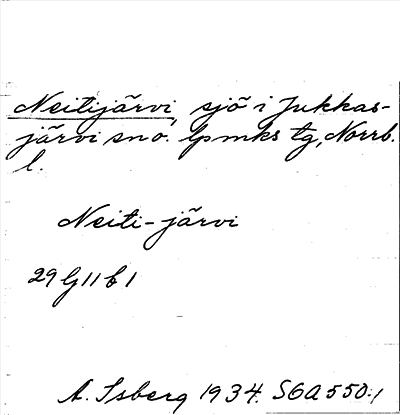 Neitijärvi, sjö i Jukkas-
järvi sno. lpmks tg, Norrb.
l.
Neiti-järvi
29 G 11 b 1
A. Isberg 1934. S6A550:1